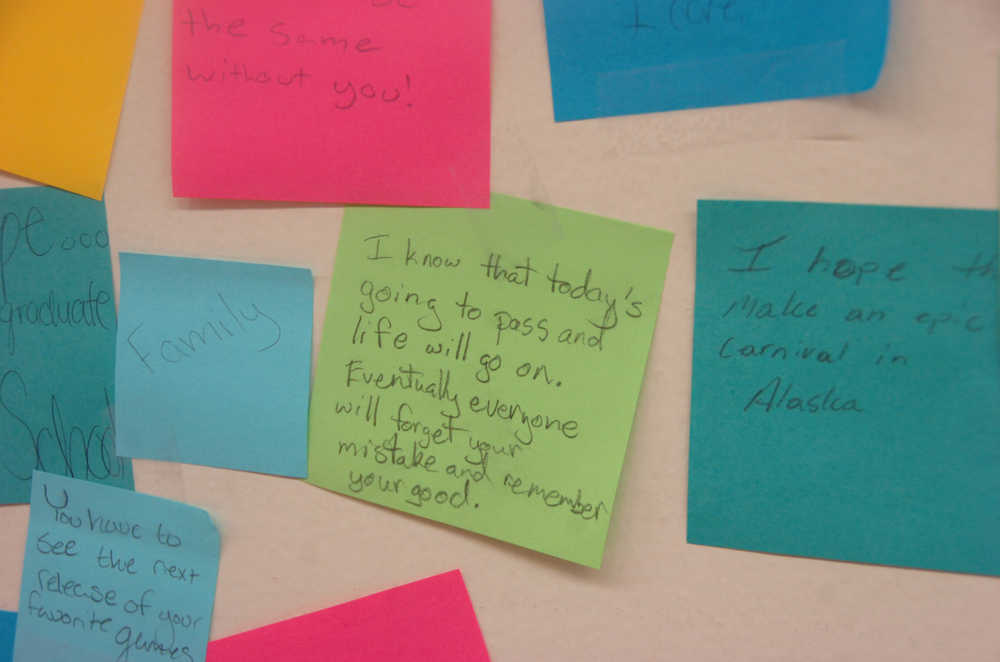 the same
without you!
I care.
pe...
graduate
School
Family
I know that today's
going to pass and
life will go on.
Eventually everyone
will forget your
mistake and remember
your good.
I hope
Make an epic
Carnival in
Alaska
You have to
see the next
release of your
favorite games